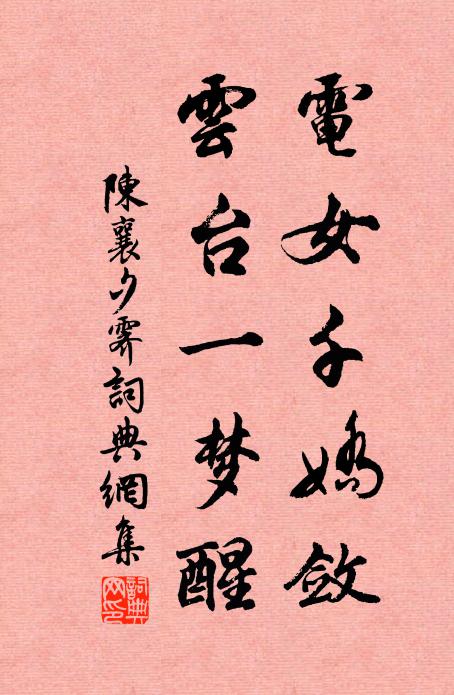 電女千嬌斂
雲台一梦醒
陳襄夕霽詞典網集
詞典網印